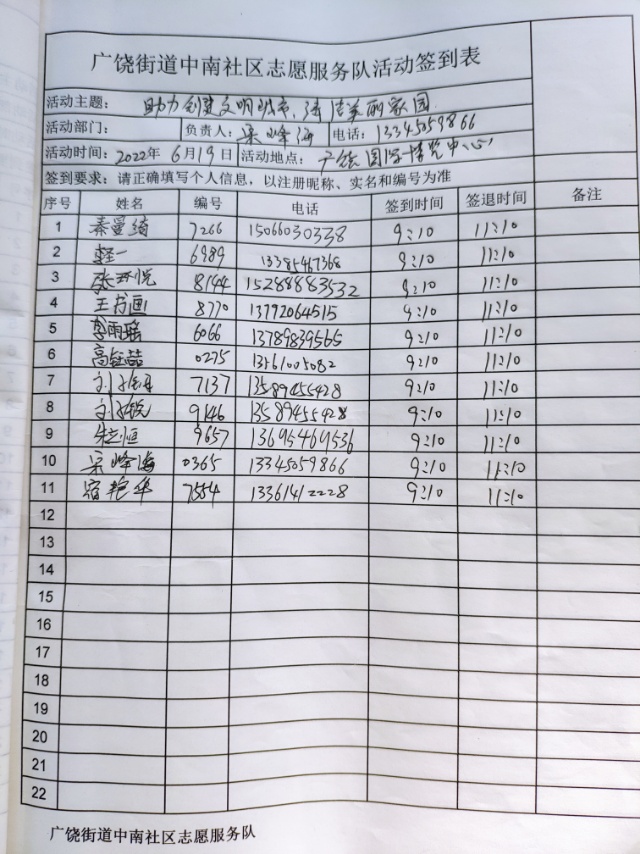 广饶街道中南社区志愿服务队活动签到表
活动主题： 助力创建文明城市，清洁美丽家园
活动部门： 负责人：宋峰海 电话：13345059866
活动时间：2022年6月19日 活动地点：广饶国际博览中心
签到要求：请正确填写个人信息，以注册昵称、实名和编号为准
序号 姓名 编号 电话 签到时间 签退时间 备注
1 秦曼绮 7266 15066030338 9:10 11:10
2 6989 13385467368 9:10 11:10
3 张环悦 8144 15288883532 9:10 11:10
4 王书画 8770 13792064515 9:10 11:10
5 李雨瑶 6066 13789839565 9:10 11:10
6 高钰喆 0275 13561005082 9:10 11:10
7 7137 13589455428 9:10 11:10
8 9146 13589455428 9:10 11:10
9 朱恒 9657 13695469536 9:10 11:10
10 宋峰海 0365 13345059866 9:10 11:10
11 宿艳华 7554 13361412228 9:10 11:10
12
13
14
15
16
17
18
19
20
21
22
广饶街道中南社区志愿服务队